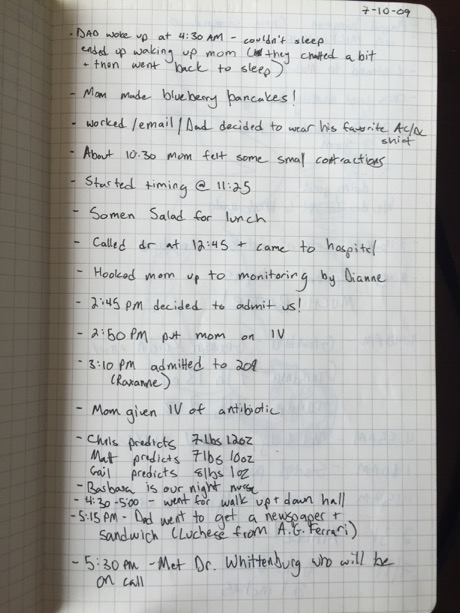 7-10-09
· DAD woke up at 4:30 AM - couldn't sleep
ended up waking up mom (they chatted a bit
+ then went back to sleep)
- Mom made blueberry pancakes!
- worked/email/Dad decided to wear his favorite AC/DC
shirt
- About 10:30 mom felt some small contractions
- Started timing @ 11:25
- Somen Salad for lunch
- Called dr at 12:45 + came to hospital
- Hooked mom up to monitoring by Dianne
- 2:45 PM decided to admit us!
- 2:50 PM put mom on IV
- 3:10 PM admitted to 201
(Roxanne)
- Mom given IV of antibiotic
- Chris predicts 7lbs 12oz
Matt predicts 7lbs 10oz
Gail predicts 8lbs 1oz
- Barbara is our night nurse
- 4:30-5:00 - went for walk up + down hall
- 5:15 PM - Dad went to get a newspaper +
sandwich (Luchese from A.G. Ferrari)
- 5:30 PM - Met Dr. Whittenburg who will be
on call